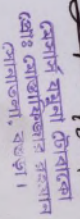 মেসার্স যমুনা টোব্যাকো
প্রোঃ মোস্তাফিজার রহমান
সোনাতলা, বগুড়া।